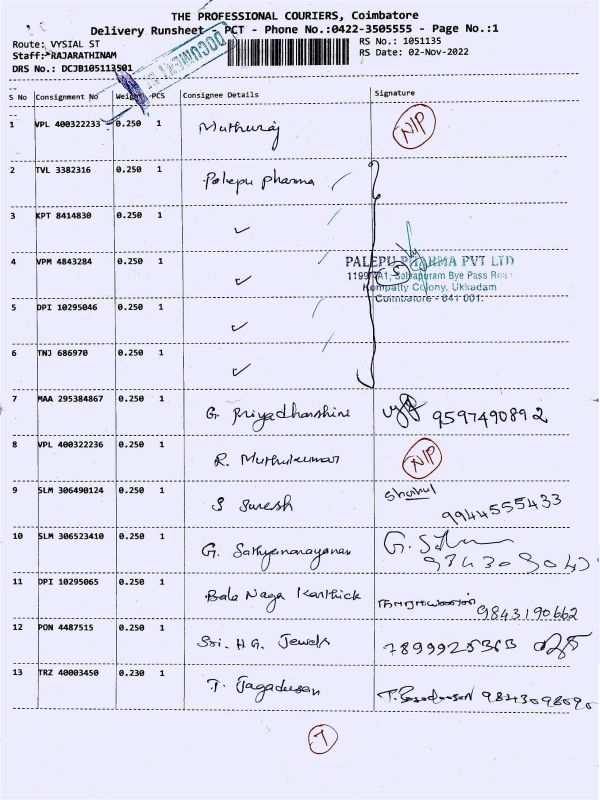 THE PROFESSIONAL COURIERS, Coimbatore
Delivery Runsheet - PCT - Phone No.:0422-3505555 - Page No.:1
Route: VYSIAL ST
RS No.: 1051135
Staff: RAJARATHINAM
RS Date: 02-Nov-2022
DRS No.: DCJB105113501
S No Consignment No Weight PCS Consignee Details Signature
1 VPL 400322233 0.250 1 Muthuraj N/P
2 TVL 3382316 0.250 1 Palepu pharma
3 KPT 8414830 0.250 1 ✓
4 VPM 4843284 0.250 1 ✓
PALEPU PHARMA PVT LTD
Bye Pass Road
Kempatty Colony, Ukkadam
Coimbatore - 641 001.
5
5 DPI 10295046 0.250 1 ✓
6 TNJ 686970 0.250 1 ✓
7 MAA 295384867 0.250 1 G. Priyadharshini 9597490892
8 VPL 400322236 0.250 1 R. Muthukumar N/P
9 SLM 306490124 0.250 1 S Suresh 9944555433
10 SLM 306523410 0.250 1 G. Sathyanarayanan
11 DPI 10295065 0.250 1 Bala Naga Karthick 9843190662
12 PON 4487515 0.250 1 Sri. H.G. Jewels
13 TRZ 40003450 0.230 1 T. Jagadesan
7